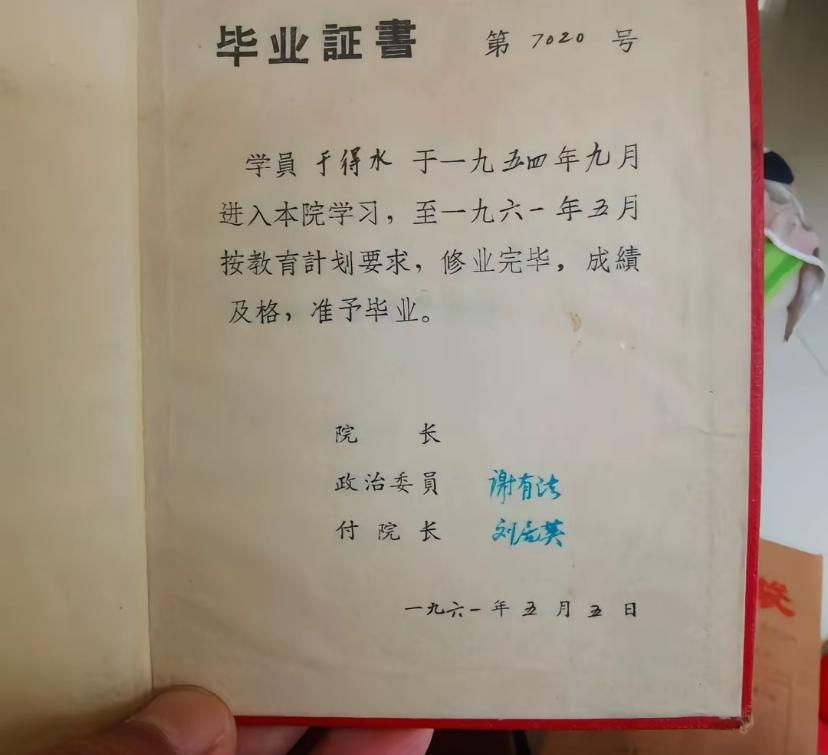 毕业証書 第 7020 号
学員 于得水 于一九五四年九月
进入本院学习，至一九六一年五月
按教育計划要求，修业完毕，成績
及格，准予毕业。
院 长
政治委員 谢有法
付院长 刘居英
一九六一年五月五日